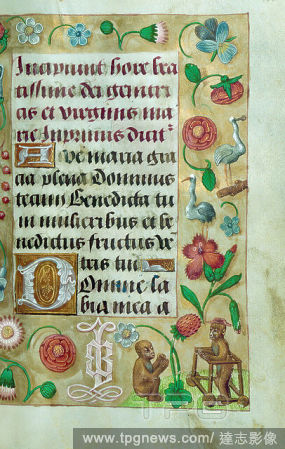 Incipiunt hore bea
tissime dei genitri
cis et virginis ma
rie Inprimis dicit
Ave maria gra
cia plena Dominus
tecum Benedicta tu
in mulieribus et be
nedictus fructus ve
tris tui
Domine la
bia mea a
www.tpgnews.com/ 達志影像